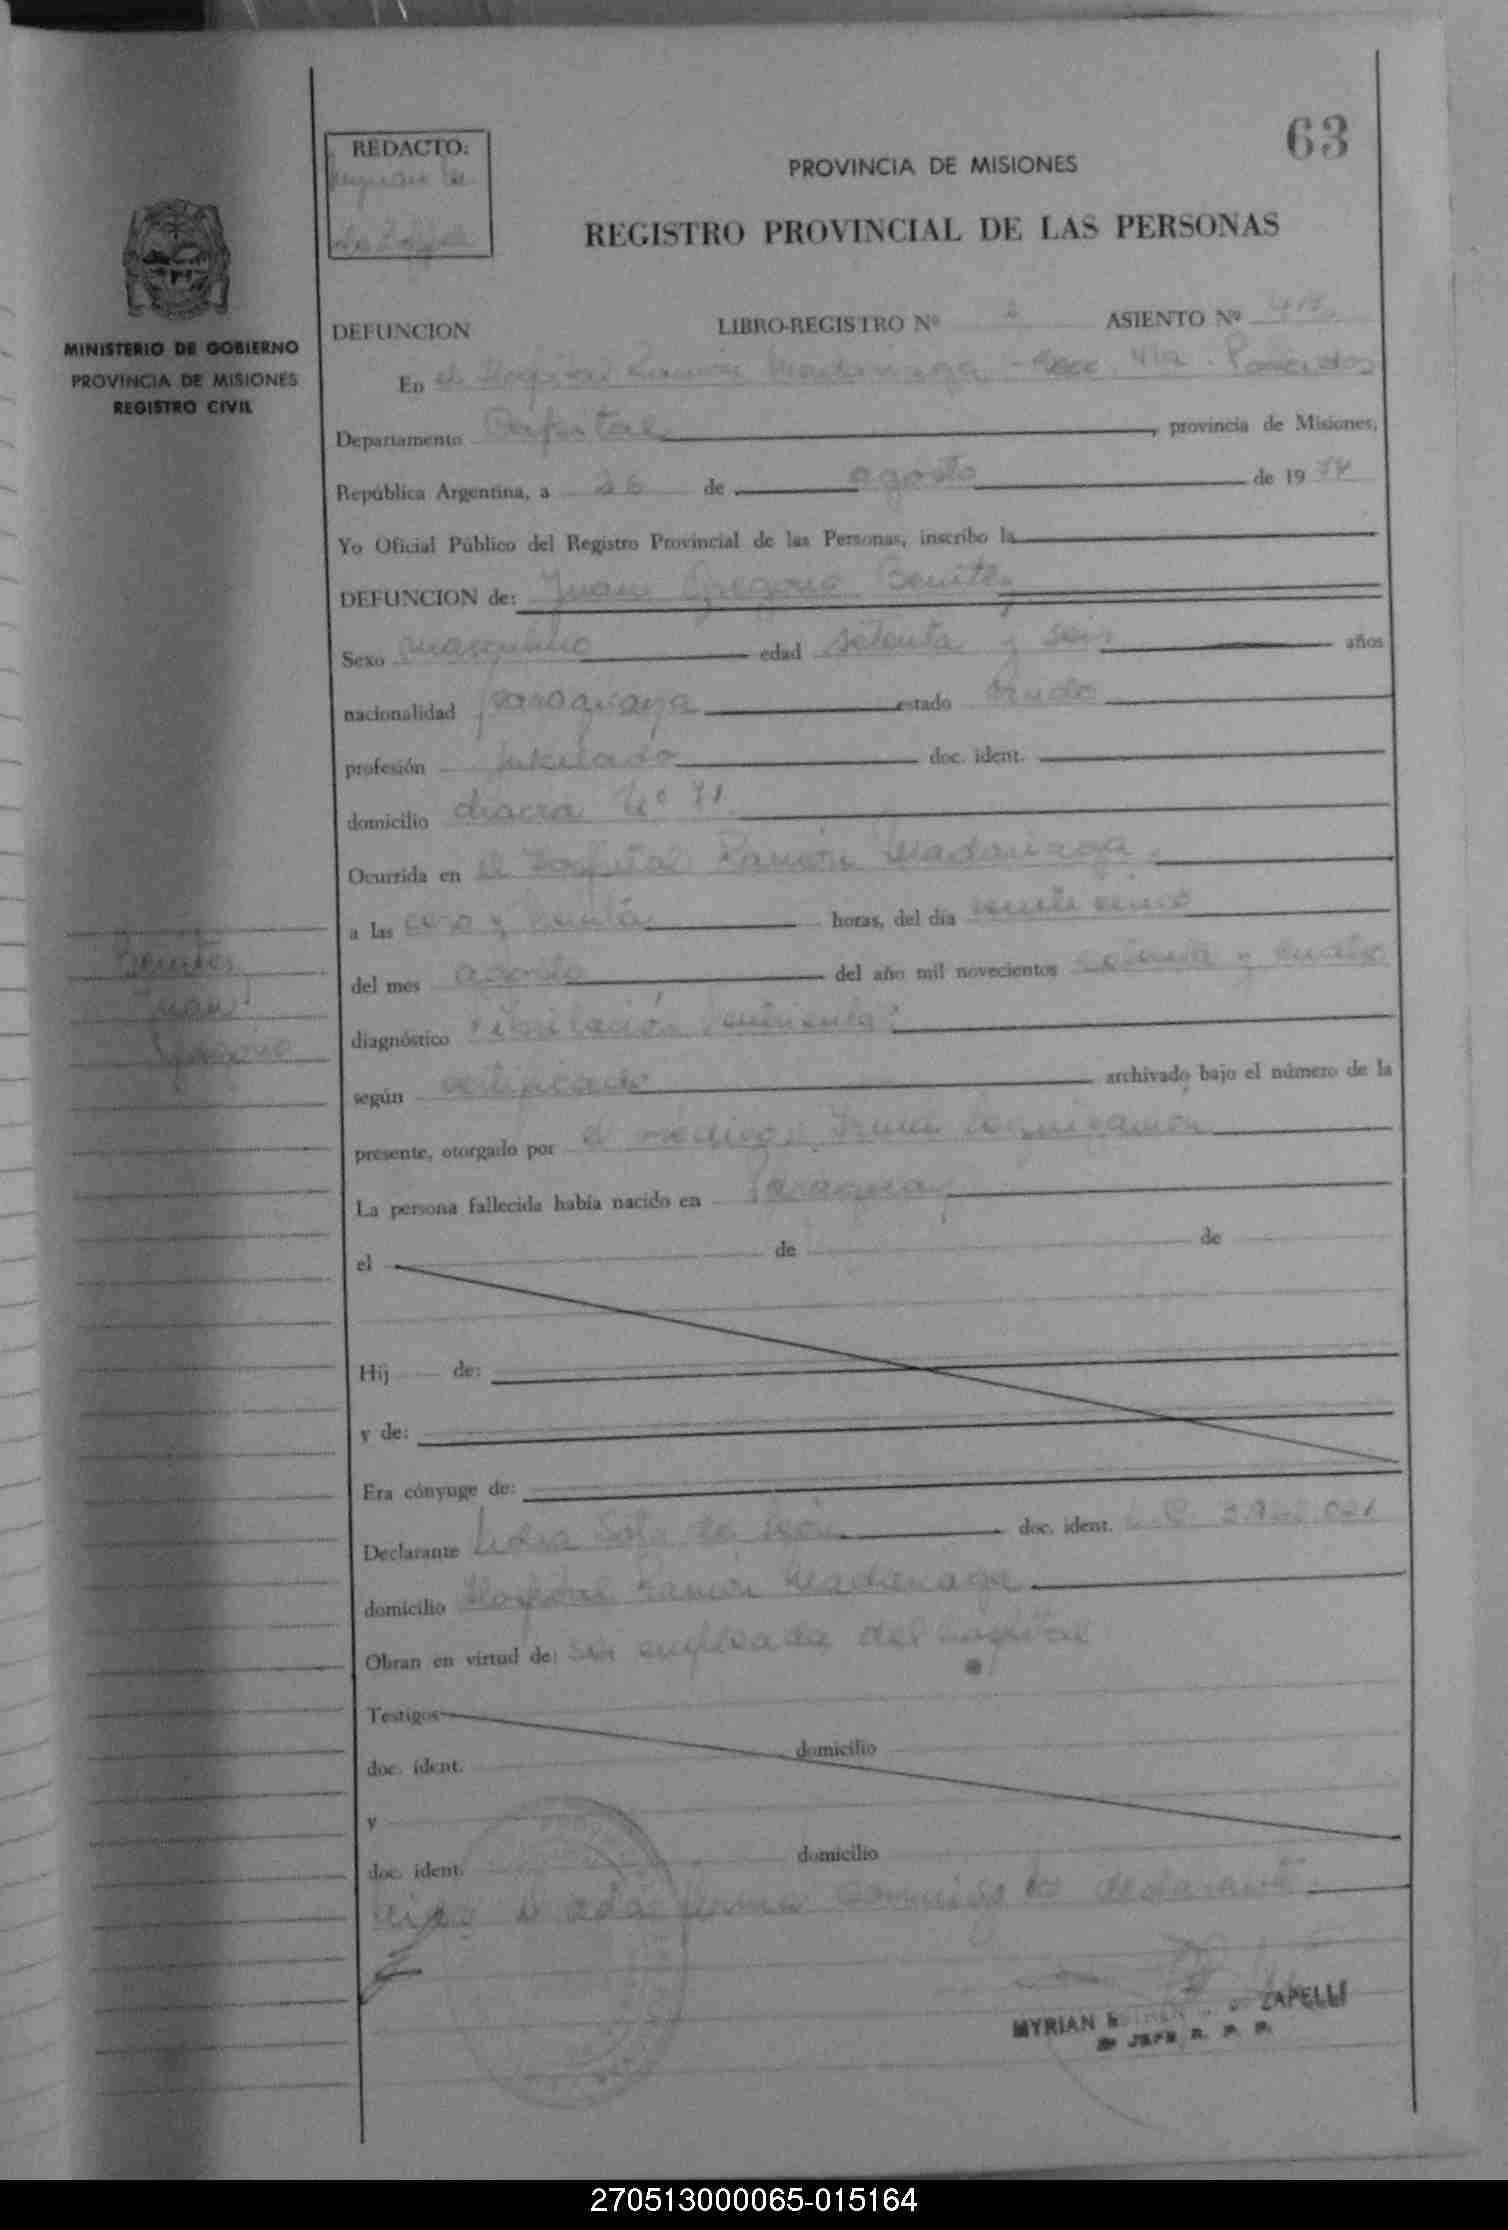 63
REDACTO:
PROVINCIA DE MISIONES
REGISTRO PROVINCIAL DE LAS PERSONAS
MINISTERIO DE GOBIERNO
PROVINCIA DE MISIONES
REGISTRO CIVIL
DEFUNCION LIBRO-REGISTRO Nº ASIENTO Nº
En el Hospital Ramón Madariaga - Secc. 4ta. Posadas
Departamento Capital, provincia de Misiones,
República Argentina, a 26 de agosto de 1974
Yo Oficial Público del Registro Provincial de las Personas, inscribo la
DEFUNCION de: Juan Gregorio Benitez
Sexo masculino edad setenta y seis años
nacionalidad paraguaya estado
profesión jubilado doc. ident.
domicilio chacra Nº 71.
Ocurrida en el Hospital Ramón Madariaga.
a las cero y treinta horas, del día veinte cinco
del mes agosto del año mil novecientos setenta y cuatro
diagnóstico "
según certificado archivado bajo el número de la
presente, otorgado por el médico: Irma
La persona fallecida había nacido en Paraguay
el de de
Hij de:
y de:
Era cónyuge de:
Declarante Lidia Soto de doc. ident. L.C.
domicilio Hospital Ramón Madariaga
Obran en virtud de: ser empleada del hospital
Testigos
doc. ident. domicilio
y
doc. ident. domicilio
Leída el acta firma conmigo la declarante.
Benitez
Juan
Gregorio
MYRIAN ZAPELLI
JEFE R. P. P.
270513000065-015164